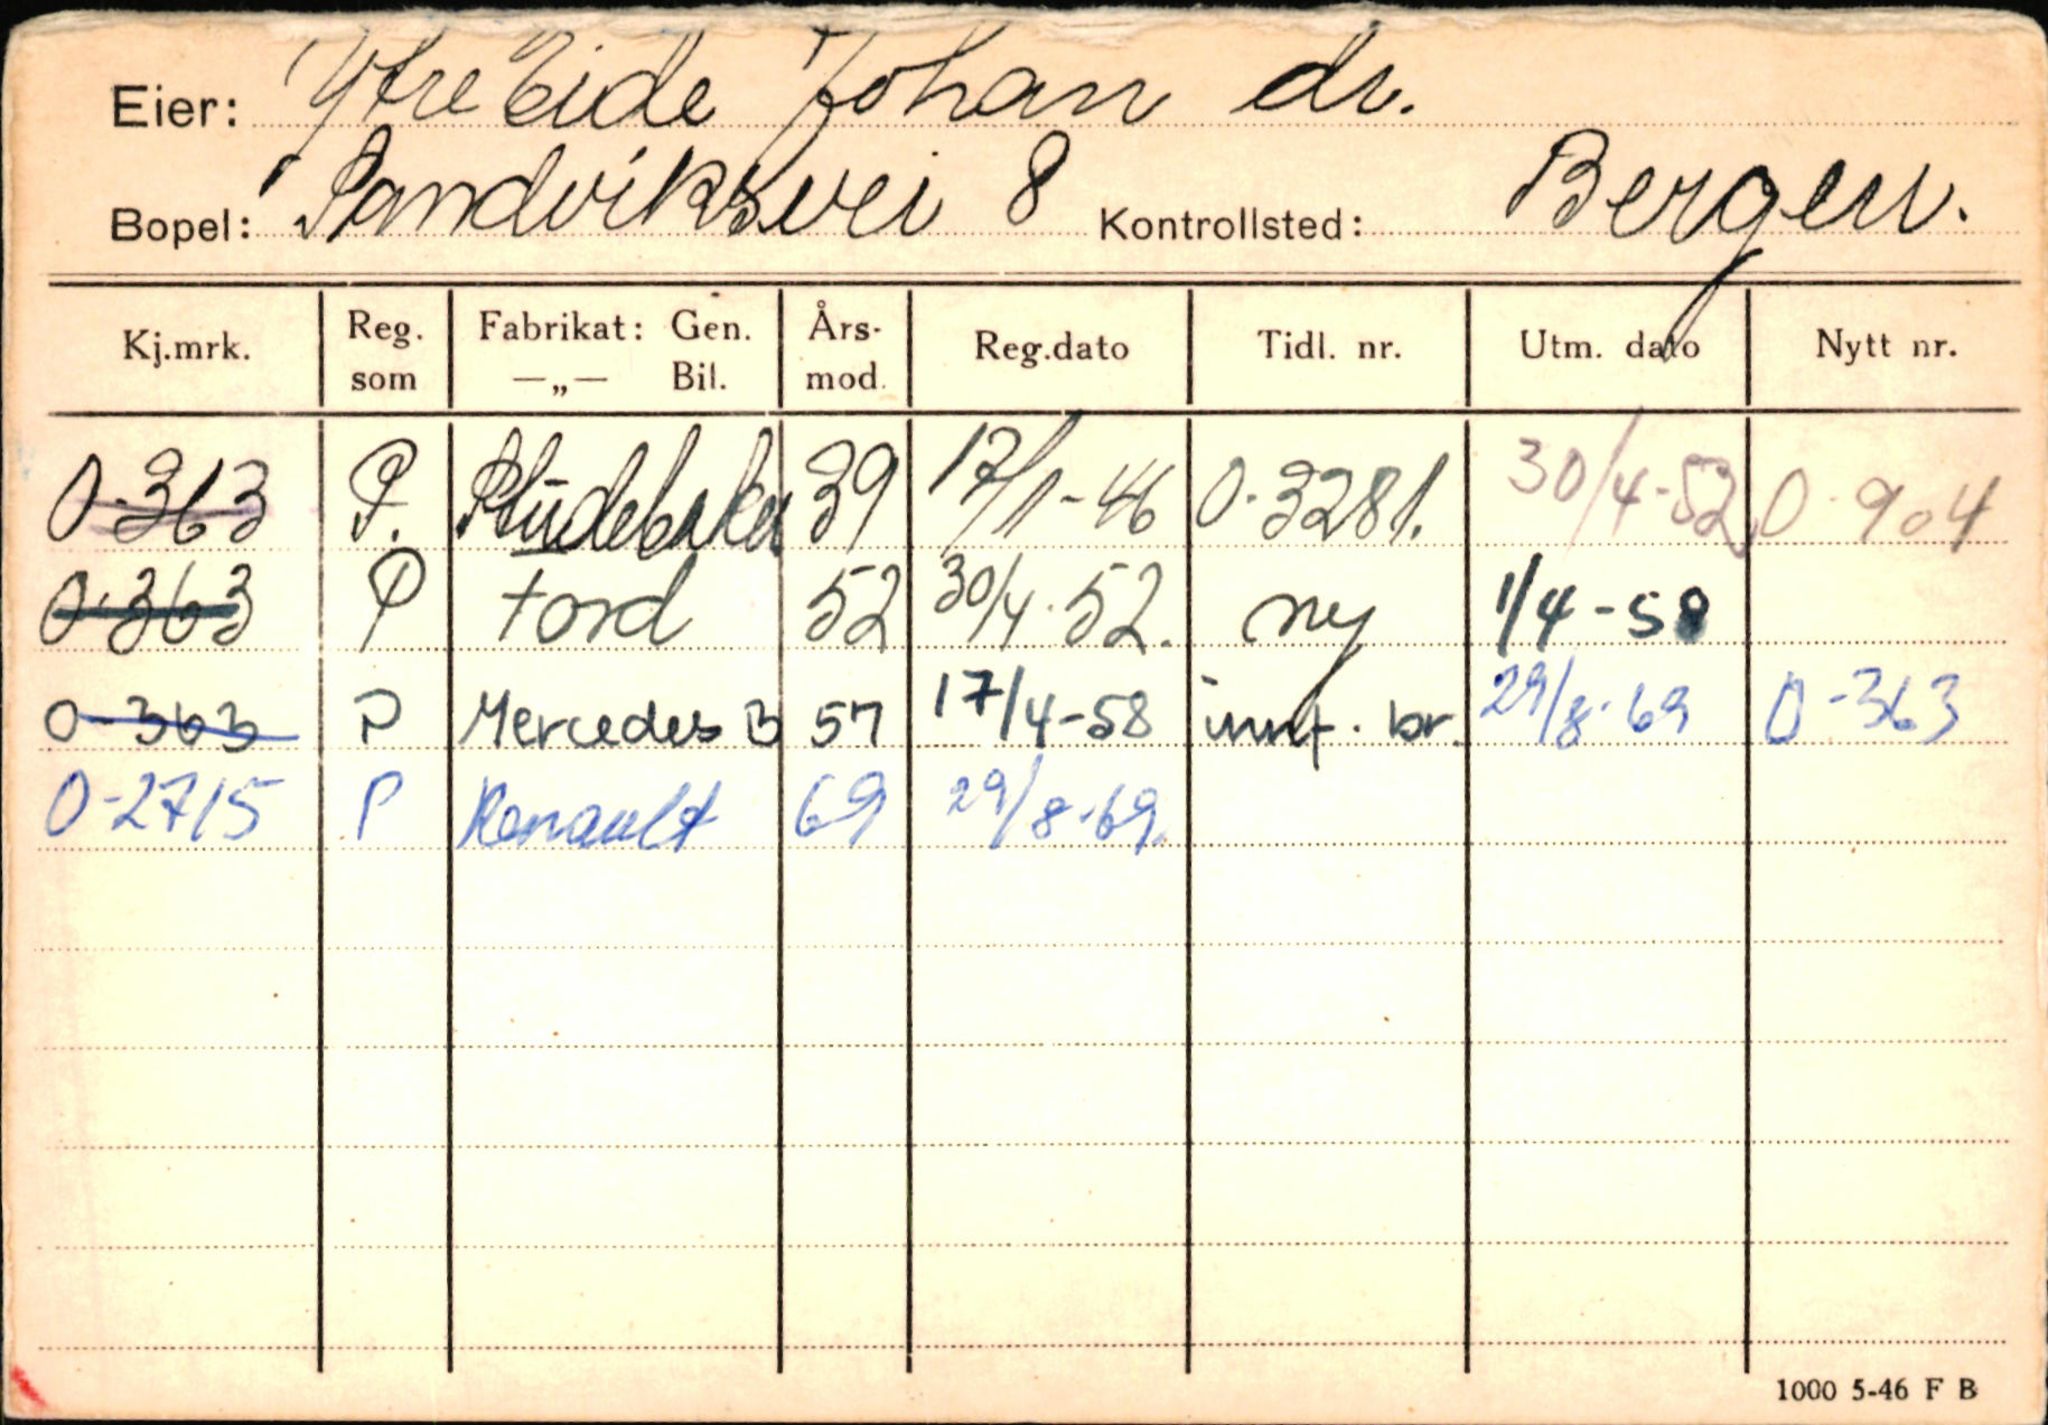 Eier: Ytre Eide Johan dr.
Bopel: Sandviksvei 8 Kontrollsted: Bergen.
Kj.mrk. Reg. som Fabrikat: Gen. —„— Bil. Års- mod. Reg.dato Tidl. nr. Utm. dato Nytt nr.
O-363 P. Studebaker 39 17/1-46 O-3281. 30/4-52 O-904
O-363 P Ford 52 30/4-52. ny 1/4-58
O-363 P Mercedes B 57 17/4-58 innf. br. 29/8-69 O-363
O-2715 P Renault 69 29/8-69.
1000 5-46 F B